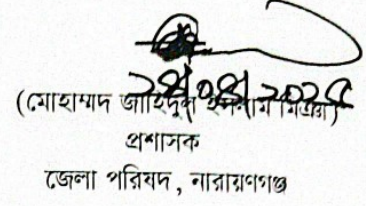 (মোহাম্মদ জাহিদুল ইসলাম মিঞা)
প্রশাসক
জেলা পরিষদ, নারায়ণগঞ্জ